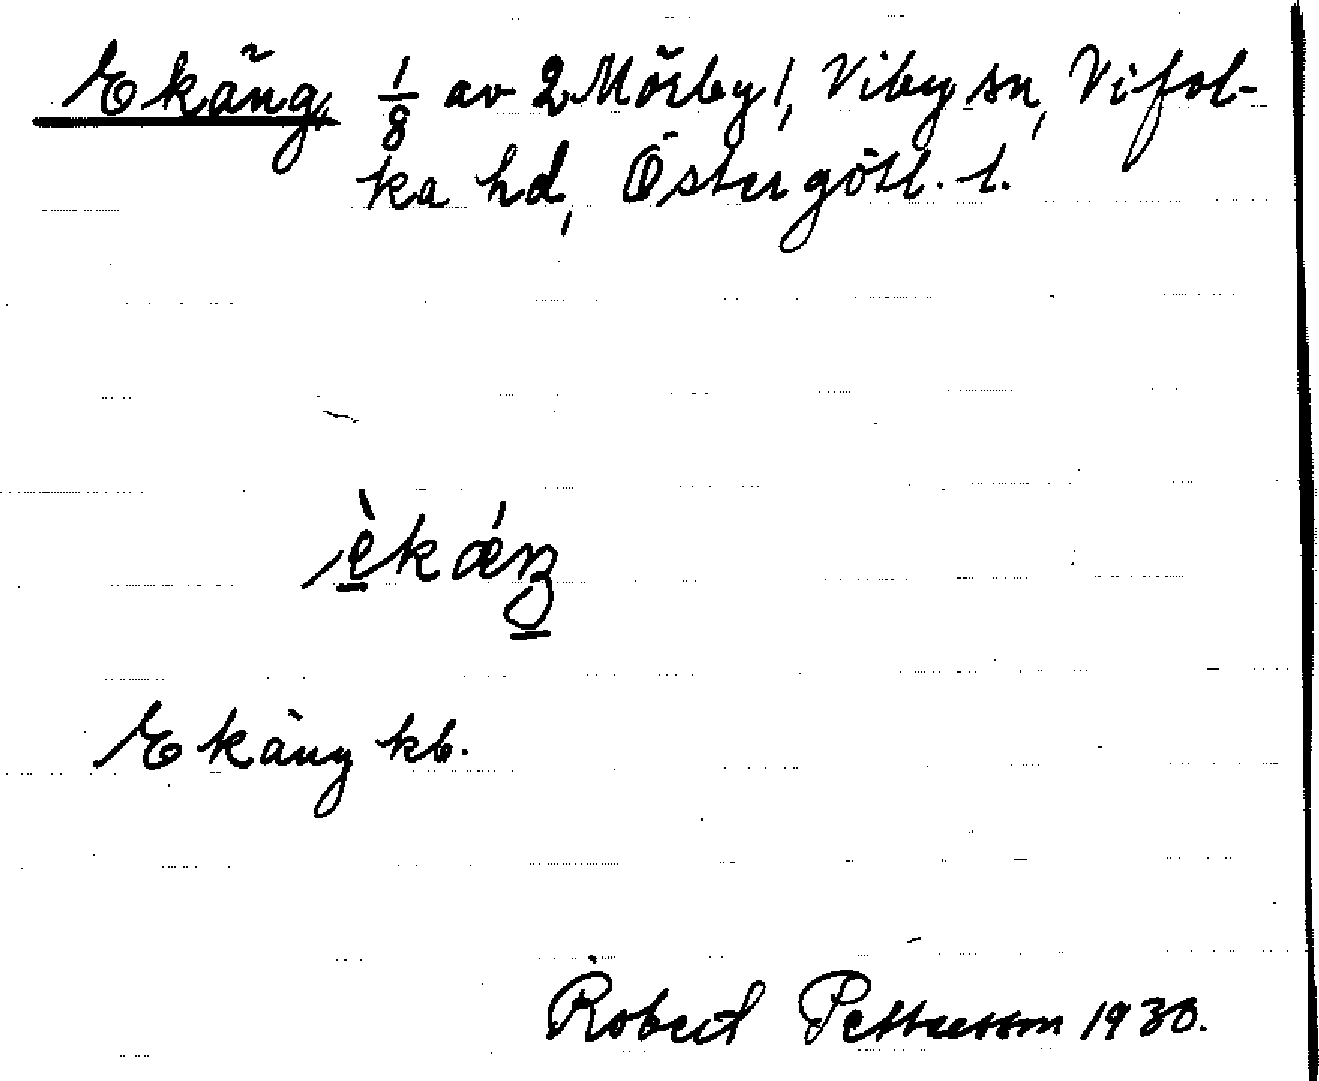 Ekäng, 1/8 av 2 Mörby!, Viby sn, Vifol-
ka hd, Östergötl. l.
èkǽŋ
Ekäng kb.
Robert Pettersson 1930.